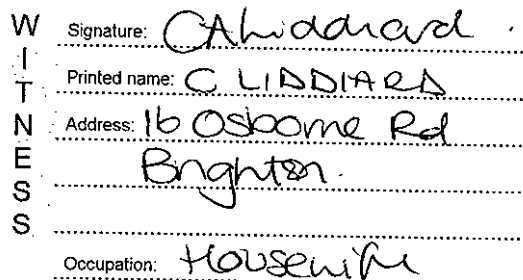 WITNESS
Signature: CALiddiard.
Printed name: C LIDDIARD
Address: 16 Osborne Rd
Brighton.
Occupation: Housewife